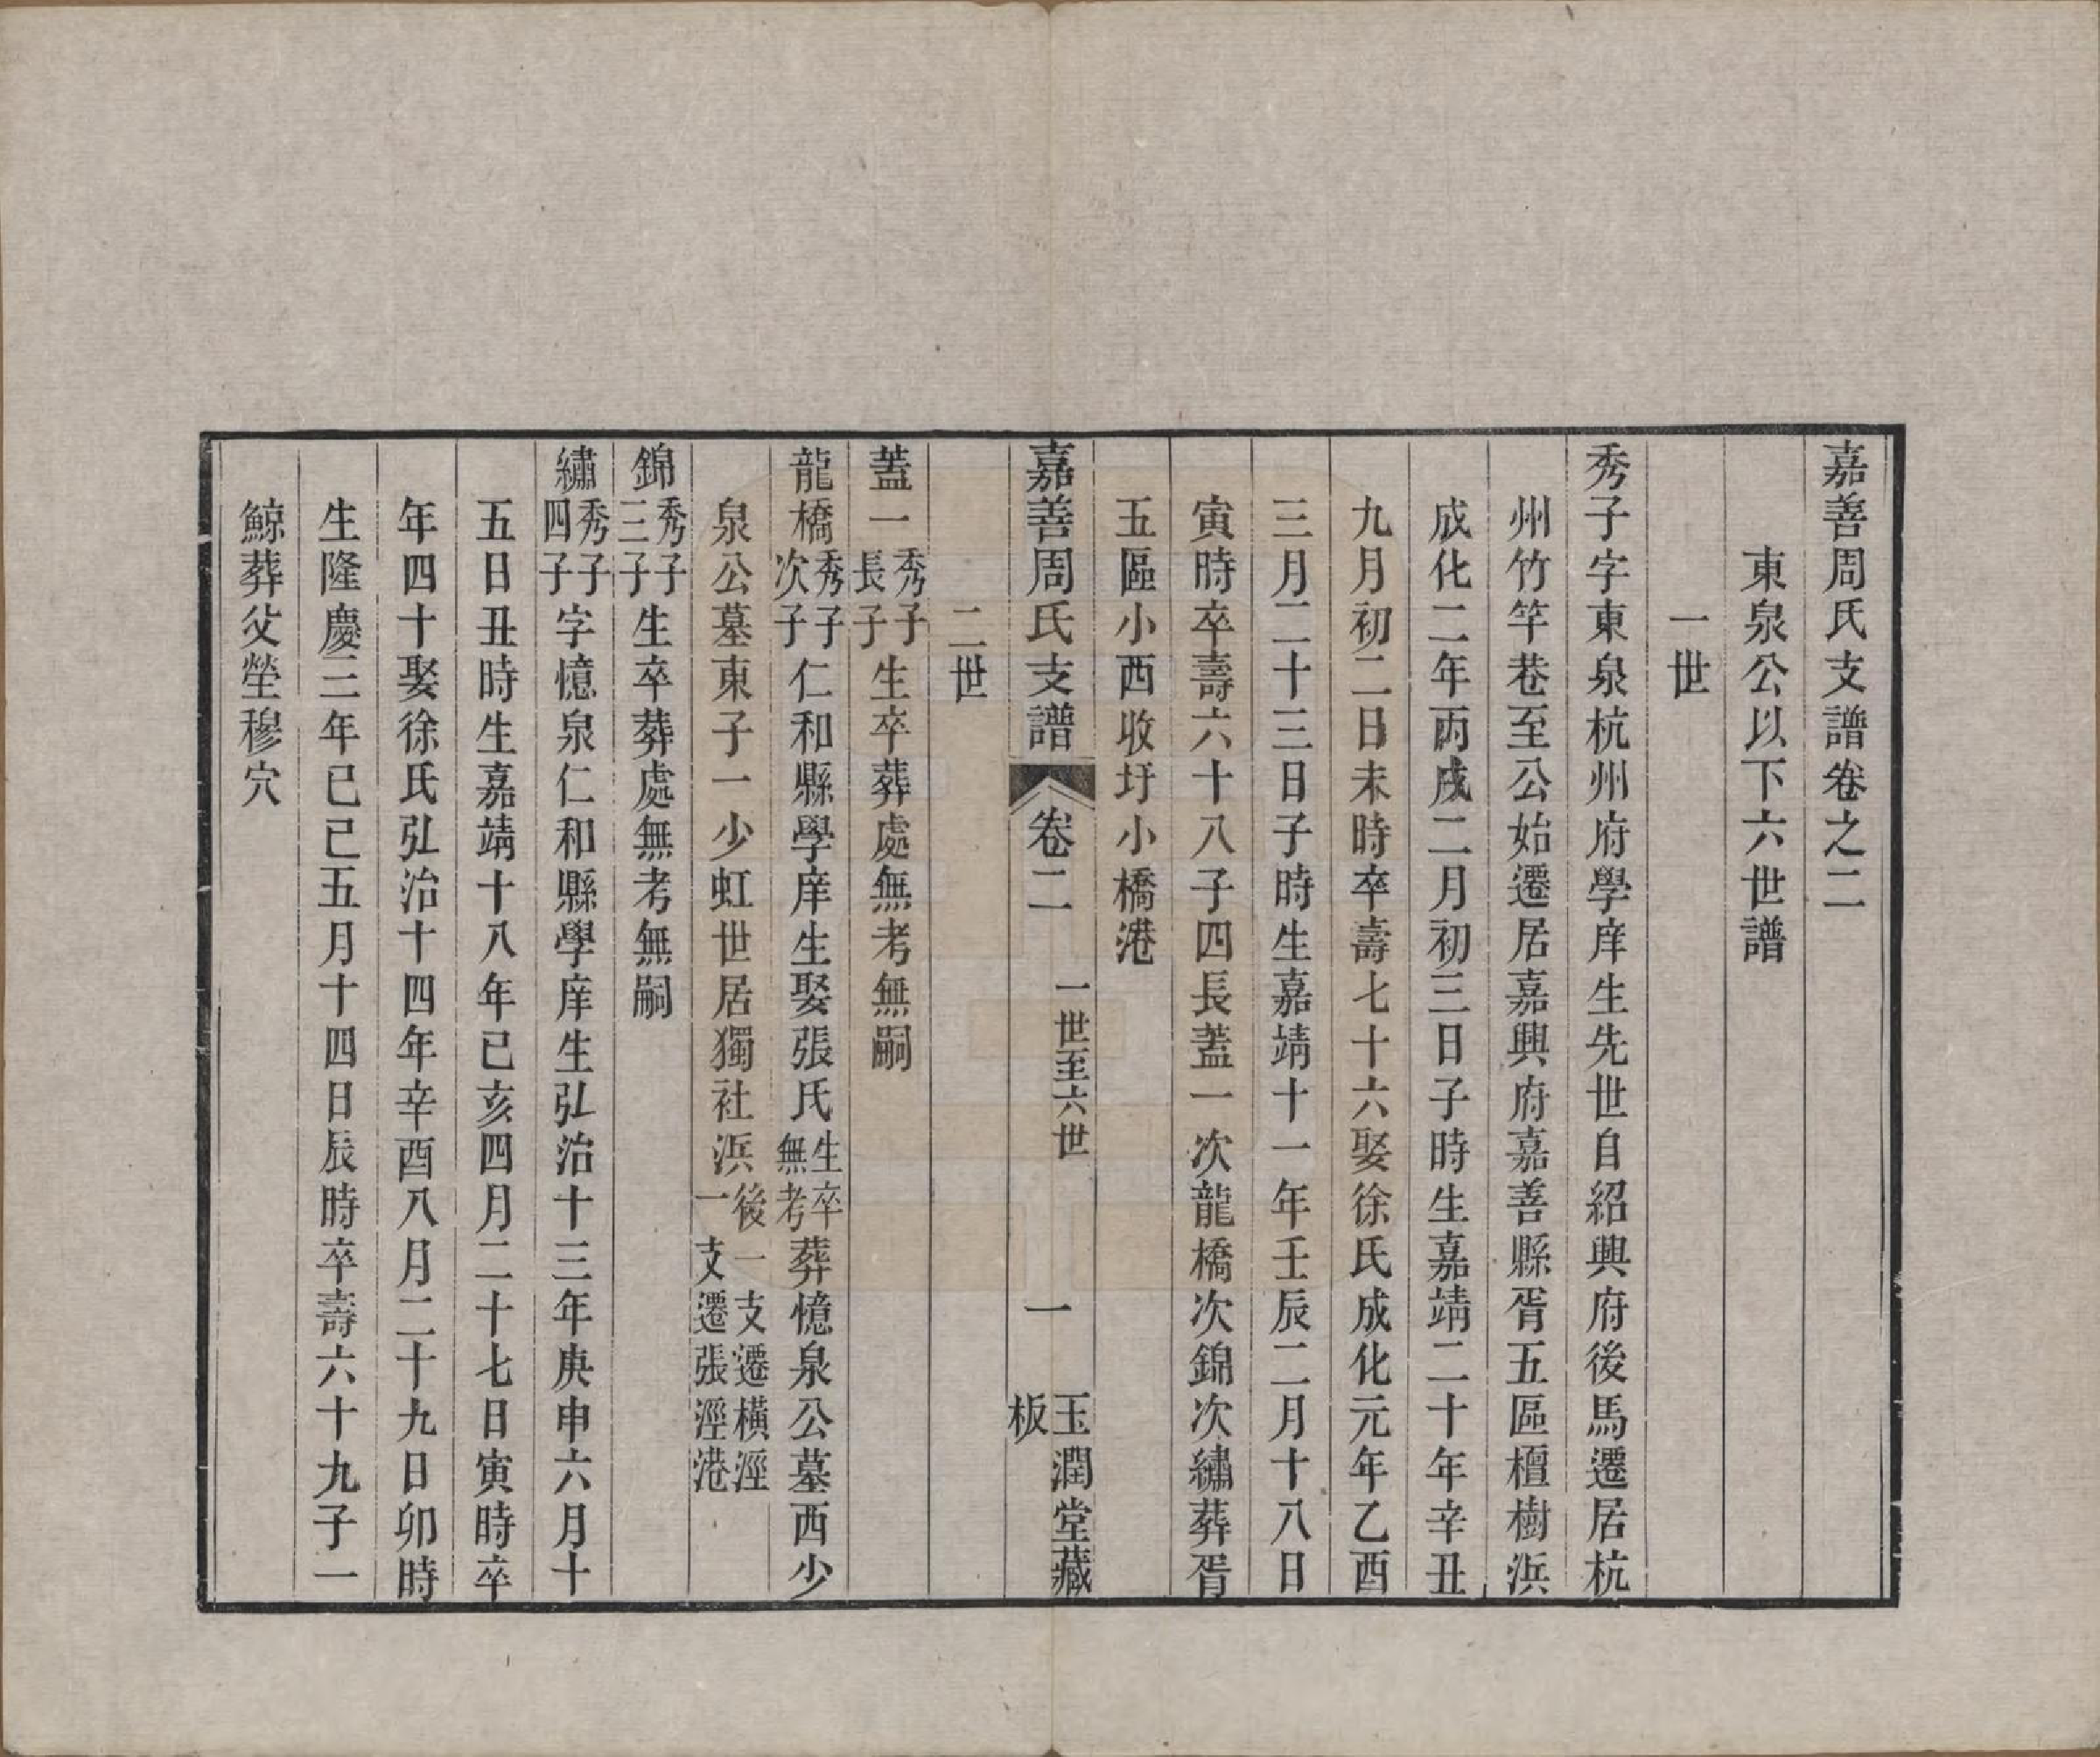 嘉善周氏支譜卷之二
東泉公以下六世譜
一世
秀子字東泉杭州府學庠生先世自紹興府後馬遷居杭
州竹竿巷至公始遷居嘉興府嘉善縣胥五區檀樹浜
成化二年丙戌二月初三日子時生嘉靖二十年辛丑
九月初二日未時卒壽七十六娶徐氏成化元年乙酉
三月二十三日子時生嘉靖十一年壬辰二月十八日
寅時卒壽六十八子四長蓋一次龍橋次錦次繡葬胥
五區小西收圩小橋港
嘉善周氏支譜 卷二 一世至六世 一 玉潤堂藏板
二世
蓋一秀子長子生卒葬處無考無嗣
龍橋秀子次子仁和縣學庠生娶張氏生卒無考葬憶泉公墓西少
泉公墓東子一少虹世居獨社浜後一支遷橫涇一支遷張涇港
錦秀子三子生卒葬處無考無嗣
繡秀子四子字憶泉仁和縣學庠生弘治十三年庚申六月十
五日丑時生嘉靖十八年己亥四月二十七日寅時卒
年四十娶徐氏弘治十四年辛酉八月二十九日卯時
生隆慶三年己巳五月十四日辰時卒壽六十九子一
鯨葬父塋穆穴